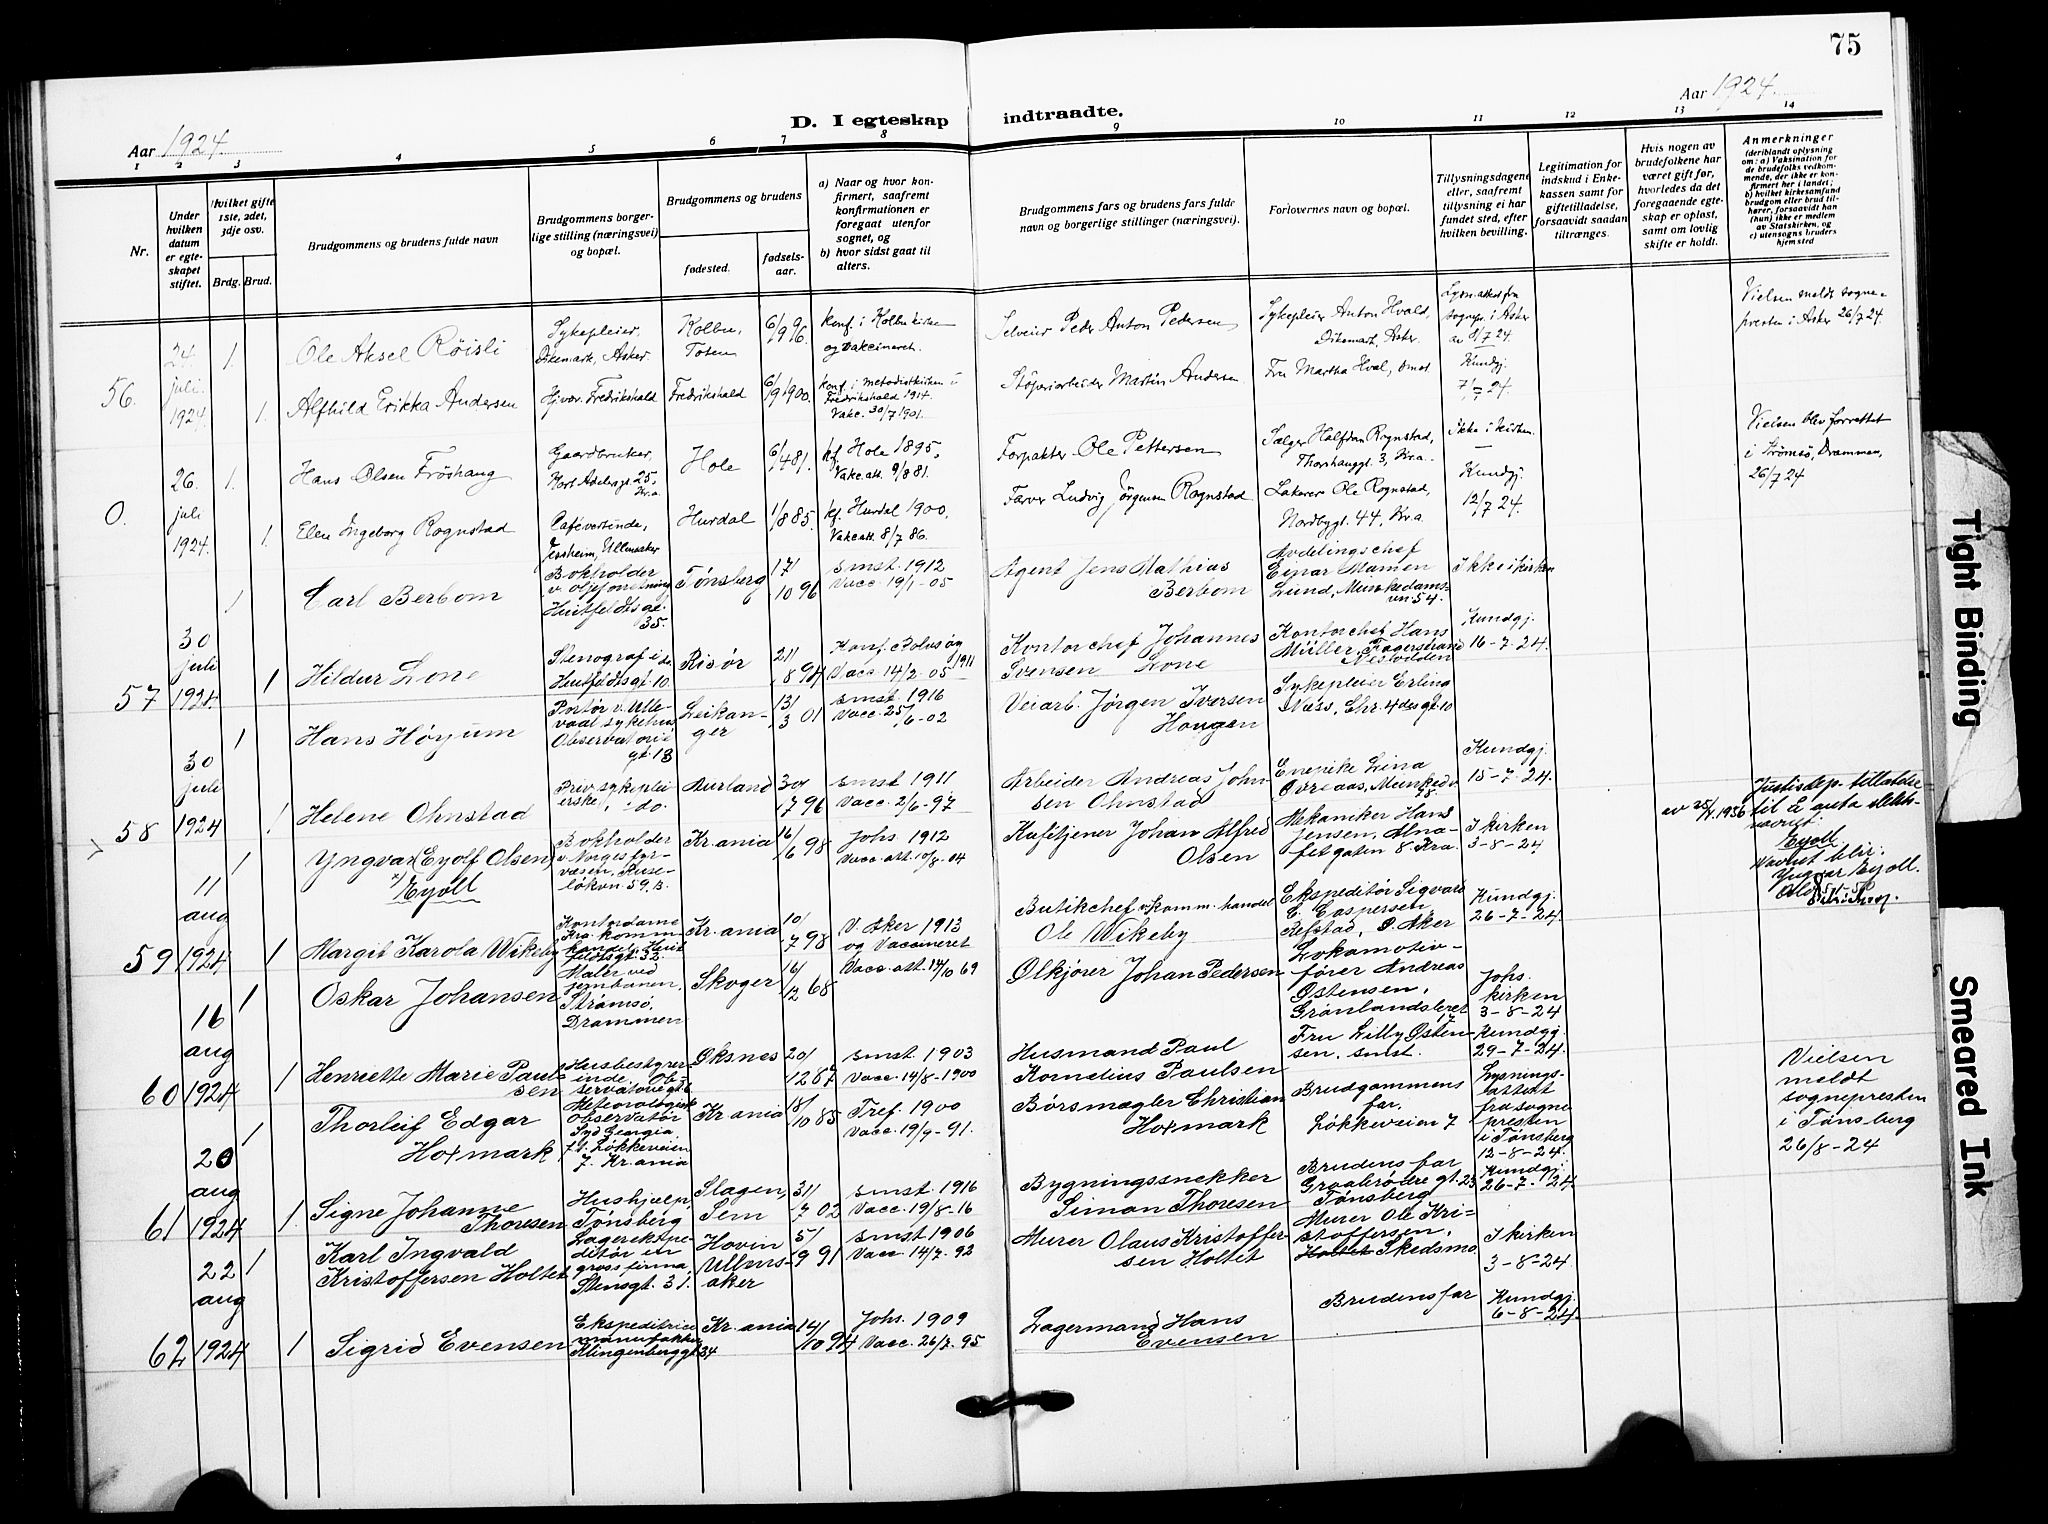 75
Aar 1924.
D. I egteskap indtraadte.
Aar 1924.
1 2 3 4 5 6 7 8 9 10 11 12 13 14
Nr.
Under hvilken datum er egteskapet stiftet.
Hvilket gifte 1ste, 2det, 3dje osv.
Brdg. Brud.
Brudgommens og brudens fulde navn
Brudgommens borgerlige stilling (næringsvei) og bopæl.
Brudgommens og brudens
fødested.
fødselsaar.
a) Naar og hvor konfirmert, saafremt konfirmationen er foregaat utenfor sognet, og
b) hvor sidst gaat til alters.
Brudgommens fars og brudens fars fulde navn og borgerlige stillinger (næringsvei).
Forlovernes navn og bopæl.
Tillysningsdagene eller, saafremt tillysning ei har fundet sted, efter hvilken bevilling.
Legitimation for indskud i Enkekassen samt for giftetilladelse, forsaavidt saadan tiltrænges.
Hvis nogen av brudefolkene har været gift før, hvorledes da det foregaaende egteskap er opløst, samt om lovlig skifte er holdt.
Anmerkninger
(deriblandt oplysning om: a) Vaksination for de brudefolks vedkommende, der ikke er konfirmert her i landet; b) hvilket kirkesamfund brudgom eller brud tilhører, forsaavidt han (hun) ikke er medlem av Statskirken, og c) utensogns bruders hjemsted
56. 24. juli 1924
1. Ole Aksel Röisli
Sykepleier, Dikemark, Asker
Kolbu, Toten
6/9 96.
konf. i Kolbu kirke og vakcineret.
Selveier Peder Anton Pedersen
Sykepleier Anton Hvald, Dikemark, Asker.
Lysn.attest fra sognepr. i Asker av 8/7 24.
Vielsen meldt sognepresten i Asker 26/7 24.
1. Alfhild Erikka Andersen
Hjvær. Fredrikshald
Fredrikshald
6/9 1900.
konf. i metodistkirken i Fredrikshald 1914. Vakc. 30/7 1901.
Støperiarbeider Martin Andersen
Fru Martha Hval,
Kundgj. 7/7 24
0. 26. juli 1924.
1. Hans Olsen Fröshaug
Gaardbruker, Kort Adelersgt. 25, Kr.a.
Hole
6/4 81.
kf. Hole 1895, Vakc.att. 9/8 81.
Forpakter Ole Pettersen
Sælger Halfdan Rognstad, Thorshauggt. 3, Kr.a.
Ikke i kirken.
Vielsen blev forrettet i Strømsø, Drammen, 26/7 24
1. Elen Ingeborg Rognstad
Cafévertinde, Jessheim, Ullensaker
Hurdal
1/8 85.
kf. Hurdal 1900, Vakc.att. 8/7 86.
Farver Ludvig Jörgensen Rognstad
Lakerer Ole Rognstad, Nordbygt. 44, Kr.a.
Kundgj. 12/7 24.
57 30 juli 1924
1 Carl Berbom
Bokholder v. oljeforretning Huitfeldtsgt. 35.
Tønsberg
17/10 96
smst. 1912 Vacc. 19/1-05
Agent Jens Mathias Berbom
Avdelingschef Einar Mamen Lund, Munkedamsvn. 54.
Ikke i kirken
1 Hildur Lone
Stenograf i do. Huitfeldtsgt. 10.
Risør
21/8 94
Vacc 14/2 05
Kontorchef Johannes Svensen Lone
Kontorchef Hans Müller, Fagerstrand Nesodden
Kundgj. 16-7-24.
58 30 juli 1924
1 Hans Høyum
Portør v. Ullevaal sykehus Observatoriegt. 18
Leikanger
13/3 01
smst. 1916 Vacc. 25/6-02
Veiarb. Jørgen Iversen Haugen
Sykepleier Erling Næss, Chr. 4des gt. 10
1 Helene Ohnstad
Priv. sykepleierske, do.
Aurland
30/7 96
smst 1911 Vacc. 2/6-97
Arbeider Andreas Johnsen Ohnstad
Kundgj. 15-7-24.
59 11 aug 1924
1 Yngvar (Eyolf Olsen) x) Eyoll
Bokholder v. Norges forvæsen, Ruseløkvn. 59. B.
Kr.ania
16/6 98
Johs 1912 Vacc.att. 10/8-04
Kafetjener Johan Alfred Olsen
Mekaniker Hans Jensen, Almafetgaten 8. Kra.
I kirken 3-8-24
Justisdep. tillatelse av 25/4 1936 til å anta slektsnavnet Eyoll Navnet blir: Yngvar Eyoll.
1 Margit Karola Wikeby
Kontordame Kra. komm. handel, Huitfeldtsgt. 32.
Kr.ania
10/7 98
V. Aker 1913 og Vaccineret
Butikchef v/komm. handel Ole Wikeby
Ekspeditör Sigvard E. Caspersen Refstad, Ø. Aker
Kundgj. 26-7-24.
60 16 aug 1924
1 Oskar Johansen
Maler ved jernbanen, Strømsø, Drammen
Skoger
16/12 68
Vacc.att. 14/10 69
Olkjører Johan Pedersen
Lokomotivfører Andreas Østensen, Grønlandsleret
Johs. kirken 3-8-24
1 Henriette Marie Paulsen
Husbestyrerinde, Observatoriegt.
Øksnes
20/12 87
smst. 1903 Vacc. 14/8-1900
Husmand Paul Kornelius Paulsen
Fru Lilly Østensen, smst.
Kundgj. 29-7-24.
61 20 aug 1924
1 Thorleif Edgar Hoxmark
Meteorologisk observatør Syd Georgia f.t. Løkkeveien 7. Kr.ania
Kr.ania
18/10 85
Tref. 1900 Vacc. 19/9-91.
Børsmægler Christian Hoxmark
Brudgommens far, Løkkeveien 7
Lysningsattest fra sognepresten i Tønsberg 12-8-24.
Vielsen meldt sognepresten i Tønsberg 26/8-24
1. Signe Johanne Thoresen
Hushjælp, Tønsberg
Slagen, Sem
31/7 02
smst. 1916 Vacc. 19/8-16
Bygningssnekker Simon Thoresen
Brudens far Graabrødre gt. 23 Tønsberg
Kundgj. 26-7-24.
62 22 aug 1924
1 Karl Ingvald Kristoffersen Holtet
Lagerekspeditör i en gross firma, Stensgt. 31.
Hovin Ullensaker
5/9 91
smst 1906 Vacc. 14/7-92
Murer Olaus Kristoffersen Holtet
Murer Ole Kristoffersen, Holtet Skedsmo
I kirken 3-8-24.
1 Sigrid Evensen
Ekspeditrice manufaktur Klingenberggt. 34
Kr.ania
14/10 94
Johs. 1909 Vacc. 26/7-95
Lagermand Hans Evensen
Brudens far
Kundgj. 6-8-24.
Tight Binding
Smeared Ink